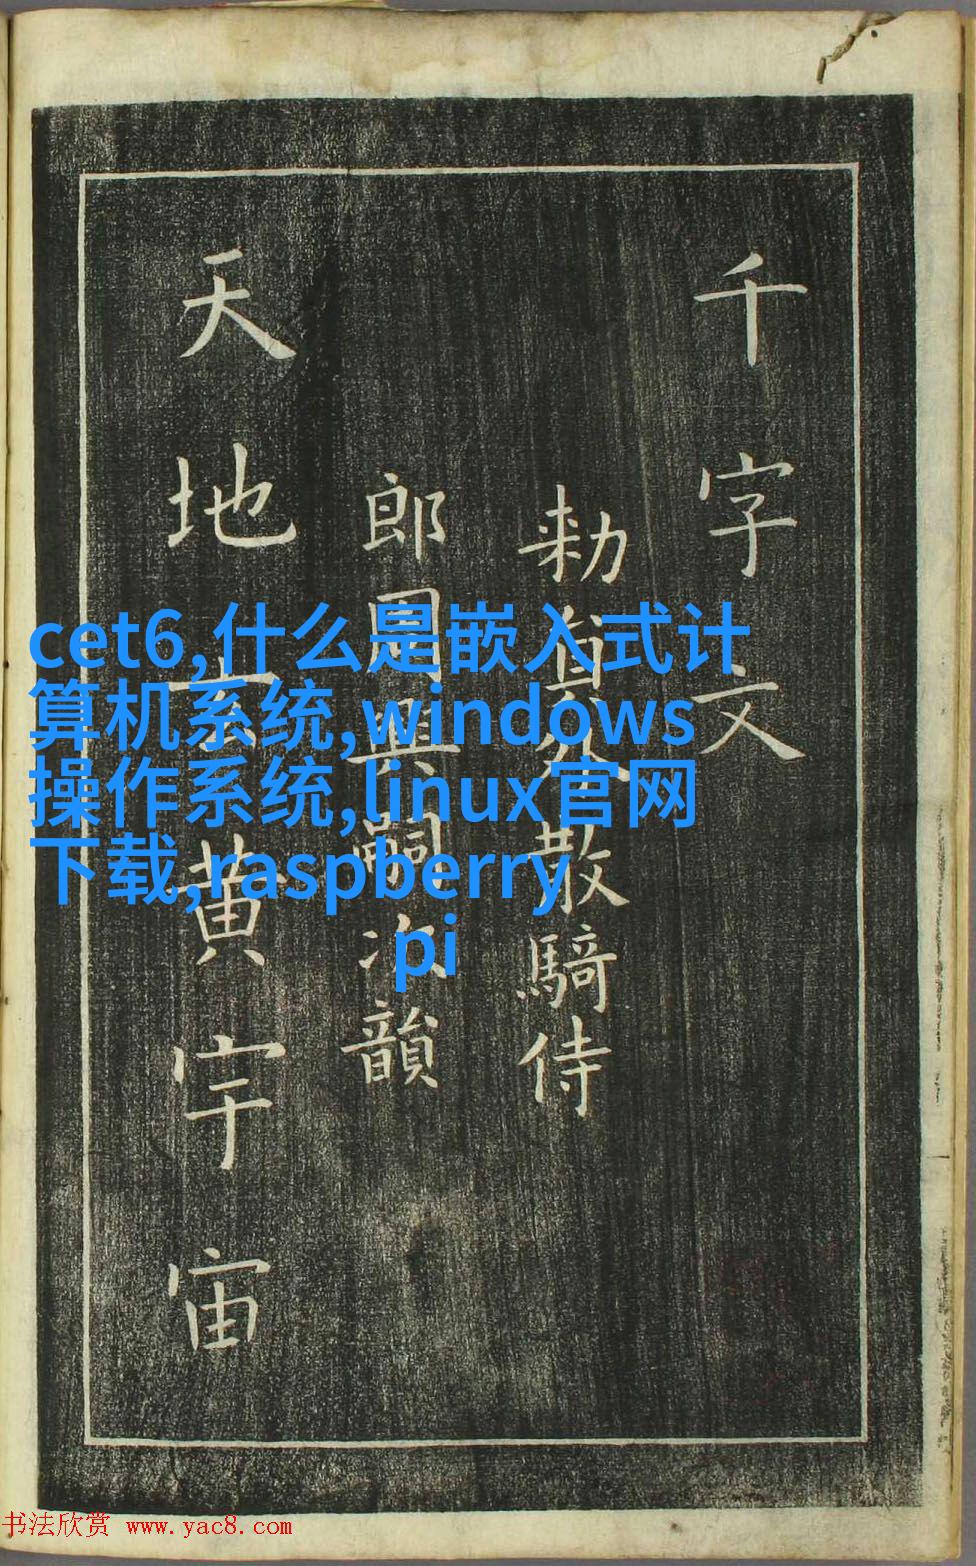 千字文
勑員外散騎侍
郎周興嗣次韻
天地玄黄宇宙
cet6,什么是嵌入式计
算机系统,windows
操作系统,linux官网
下载,raspberry
pi
书法欣赏 www.yac8.com